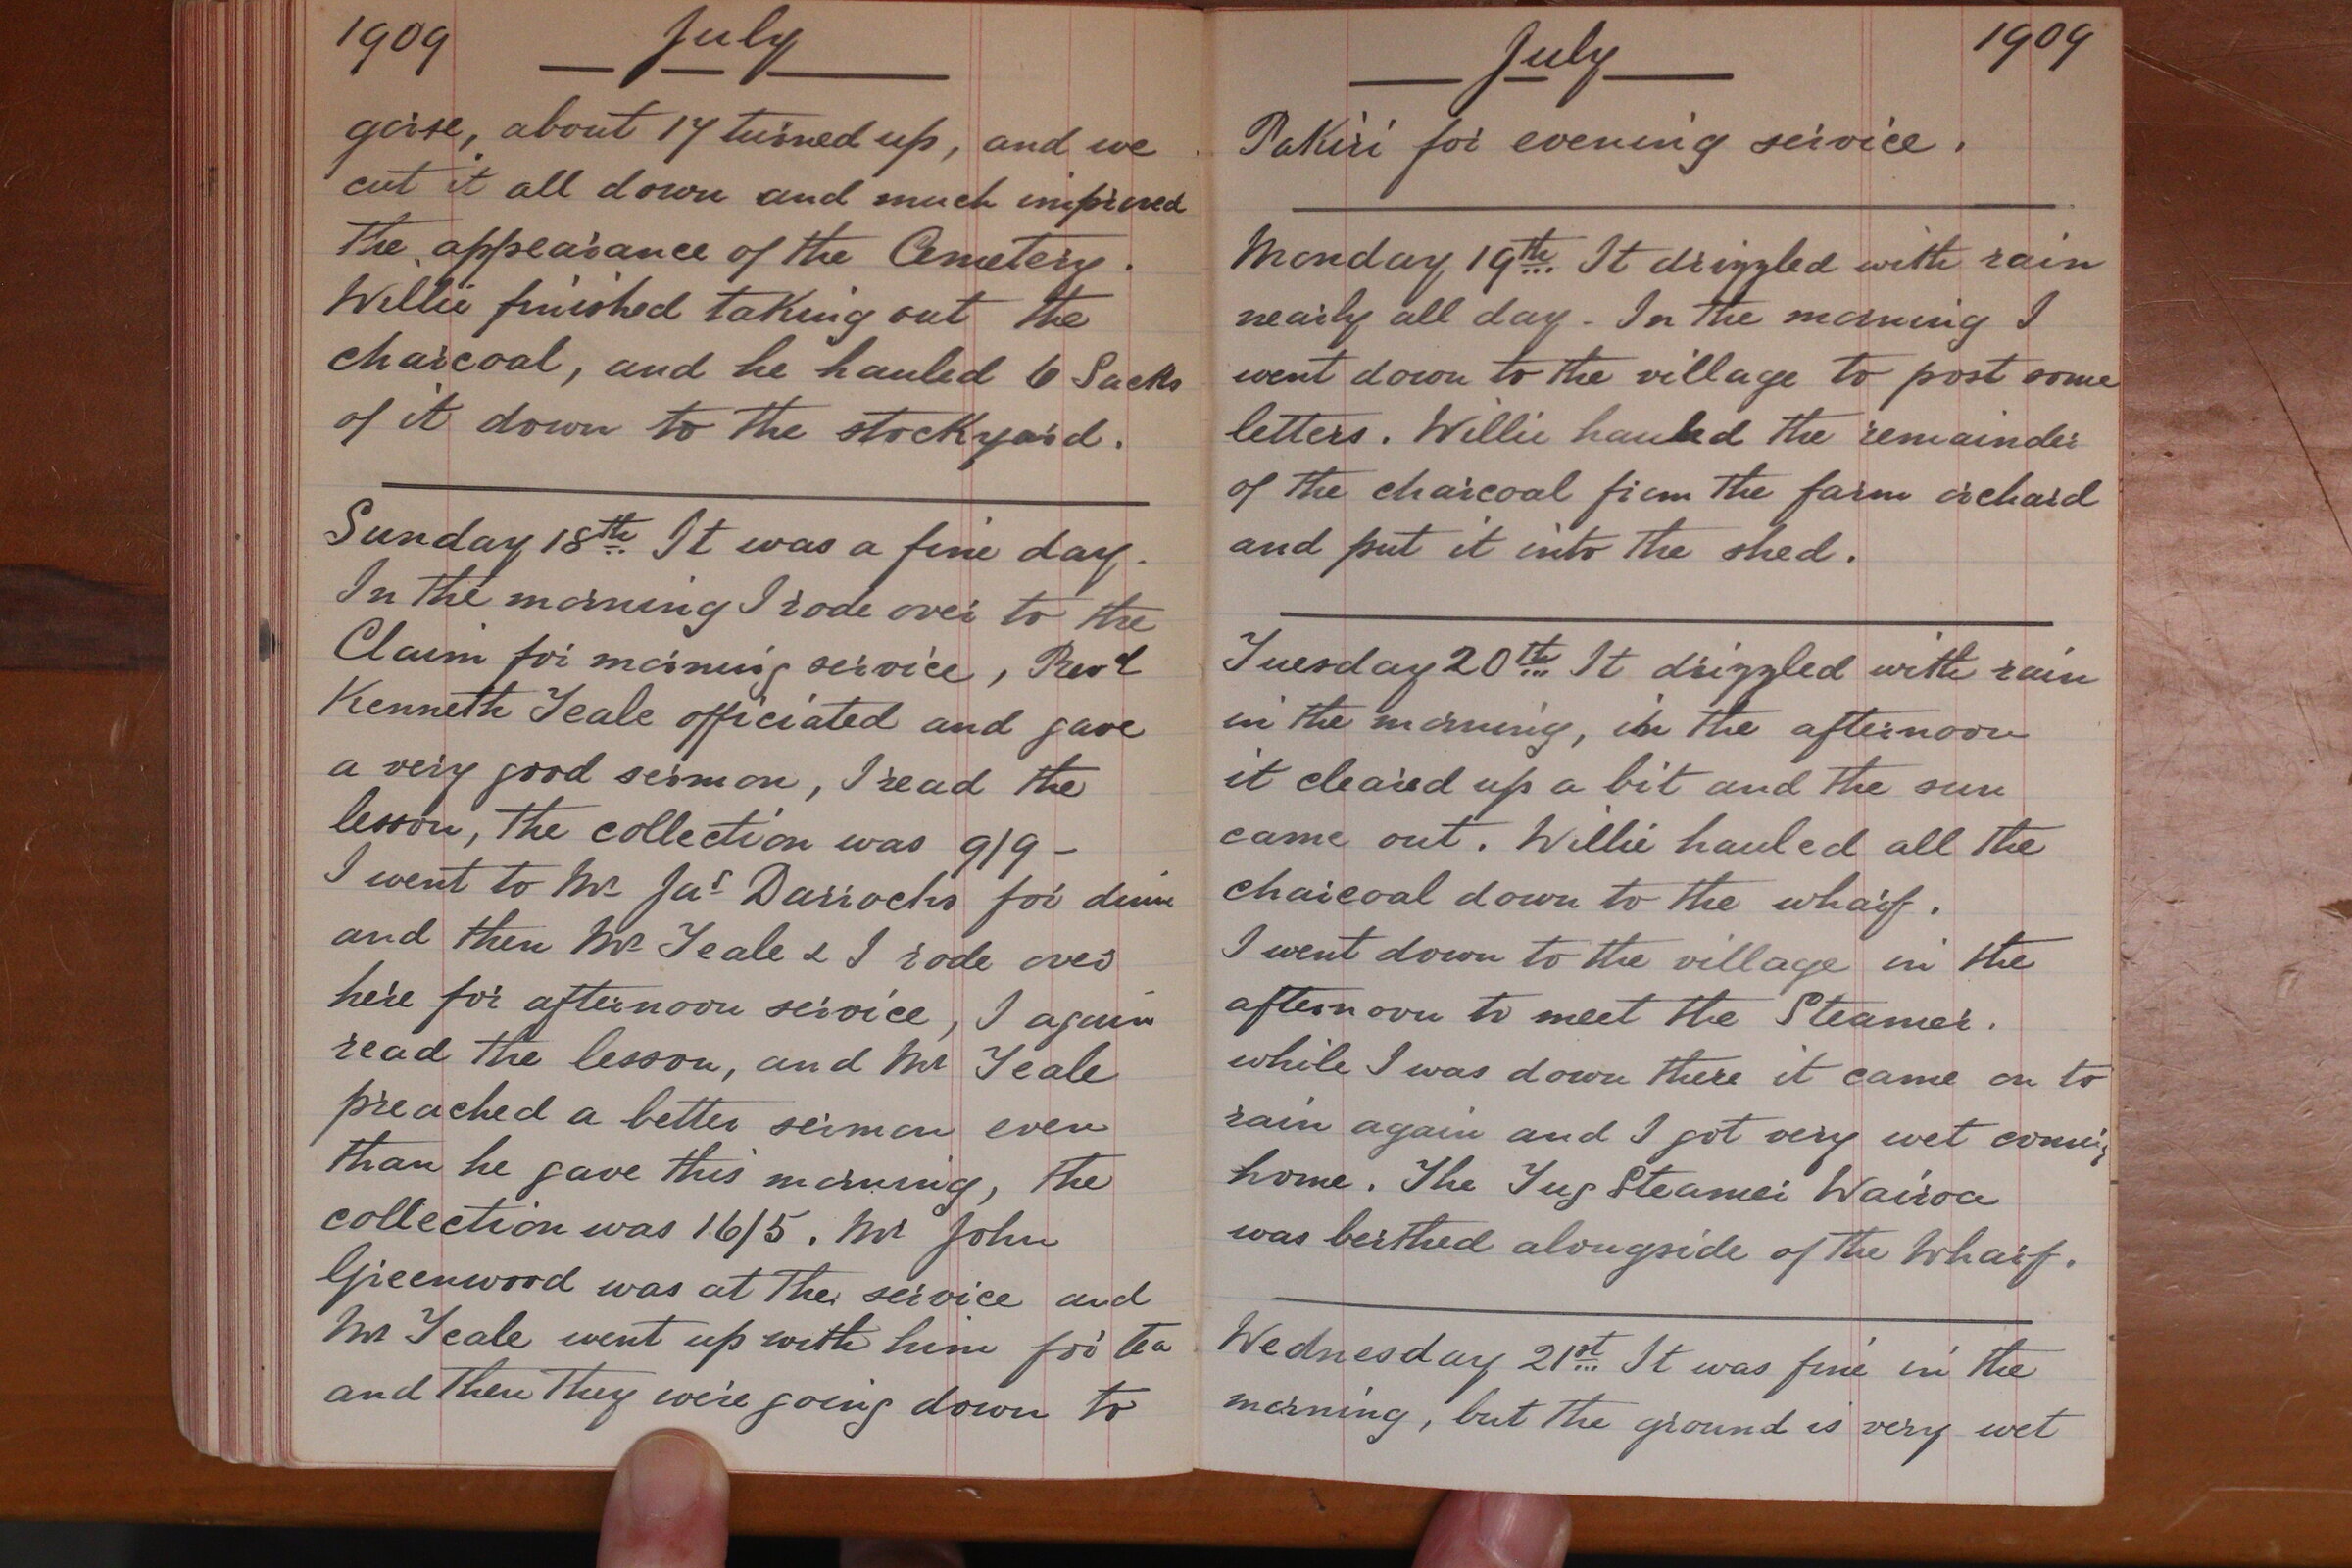 1909 July
gorse, about 17 turned up, and we
cut it all down and much improved
the appearance of the Cemetery.
Willie finished taking out the
charcoal, and he hauled 6 Sacks
of it down to the stockyard.
Sunday 18th It was a fine day.
In the morning I rode over to the
Claim for morning service, Revd
Kenneth Teale officiated and gave
a very good sermon, I read the
lesson, the collection was 9/9 -
I went to Mr Jas Darrochs for
and then Mr Teale & I rode over
here for afternoon service, I again
read the lesson, and Mr Teale
preached a better sermon even
than he gave this morning, the
collection was 16/5. Mr John
Greenwood was at the service and
Mr Teale went up with him for tea
and then they were going down to
July 1909
Pakiri for evening service.
Monday 19th It drizzled with rain
nearly all day - In the morning I
went down to the village to post some
letters. Willie hauled the remainder
of the charcoal from the farm orchard
and put it into the shed.
Tuesday 20th It drizzled with rain
in the morning, in the afternoon
it cleared up a bit and the sun
came out. Willie hauled all the
charcoal down to the wharf.
I went down to the village in the
afternoon to meet the Steamer.
while I was down there it came on to
rain again and I got very wet coming
home. The Tug Steamer Wairoa
was berthed alongside of the Wharf.
Wednesday 21st It was fine in the
morning, but the ground is very wet